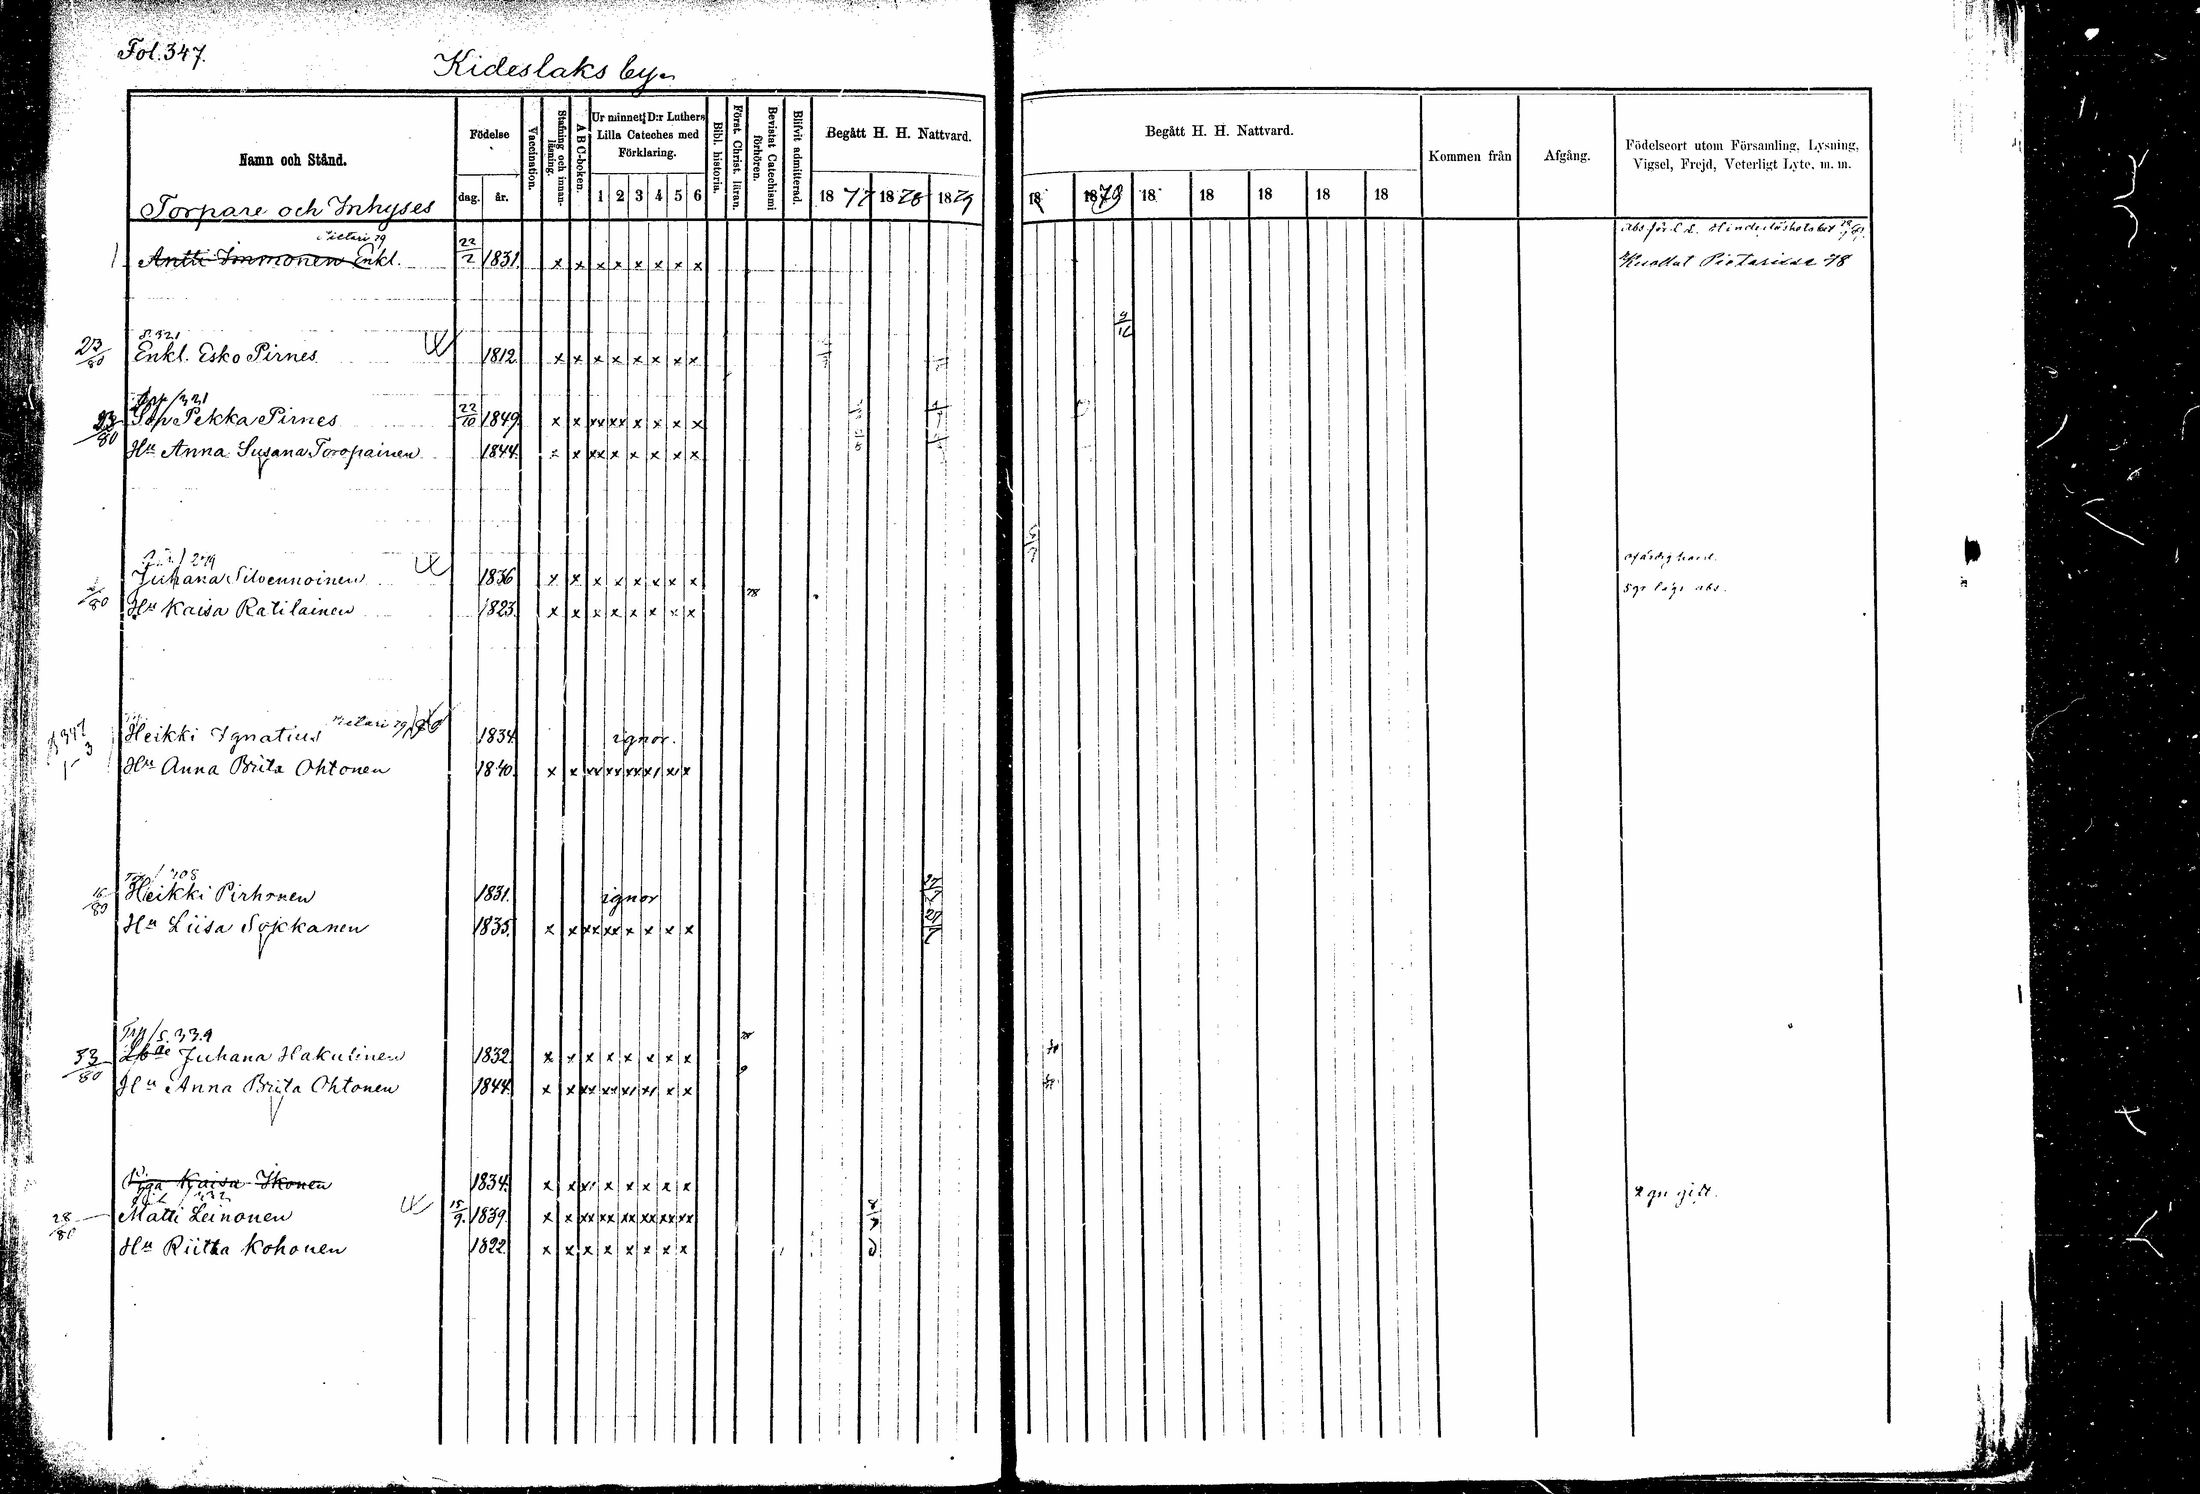 Fol. 347.
Kideslaks by.
Namn och Stånd.
Födelse
dag.
år.
Vaccination.
Stafning och innanläsning.
ABC-boken.
Ur minnet D:r Luthers Lilla Cateches med Förklaring.
1 2 3 4 5 6
Bibl. historia.
Först. Christ. läran.
Bevistat Catechismi förhören.
Blifvit admitterad.
Begått H. H. Nattvard.
1877 1878 1879
Begått H. H. Nattvard.
18 1879 18 18 18 18 18
Kommen från
Afgång.
Födelseort utom Församling, Lysning, Vigsel, Frejd, Veterligt Lyte, m. m.
Torpare och Inhyses
Pietari 79
Antti Immonen Enkl. 22/2 1831 x x x x x x x x
Kuollut Pietarissa 78
S. 321
23/80 Enkl. Esko Pirnes 1812 x x x x x x x x
/321
23/80 Pekka Pirnes 22/10 1849 x x xx xx x x x x
Hu Anna Susana Toropainen 1844 x x xx x x x x x
/279
Juhana Silvennoinen 1836 x x x x x x x x
/80 Hu Kaisa Ratilainen 1823 x x x x x x x x
78
abs.
347
Heikki Ignatius Pietari 79 1834 ignor.
Hu Anna Brita Ohtonen 1840
308
Heikki Pirhonen 1831. ignor
Hu Liisa Sokkanen 1835. x x xx xx x x x x
Trp/S. 339
33/80 Juhana Hakulinen 1832 x x x x x x x x
Hu Anna Brita Ohtonen 1844
Piga Kaisa Ikonen 1834
2 gr gift.
28/80 Matti Leinonen 15/9 1839 x x xx xx xx xx xx xx
Hu Riitta Kohonen 1822 x x x x x x x x